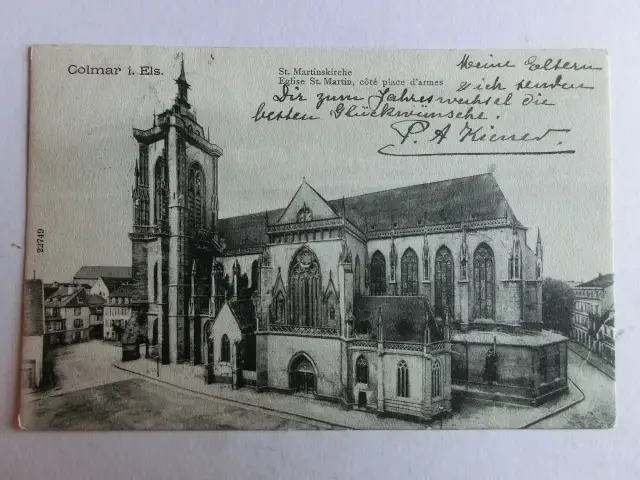 Colmar i. Els.
St. Martinskirche
Eglise St. Martin, côté place d'armes
Meine Eltern
u. ich senden
Dir zum Jahreswechsel die
besten Glückwünsche.
P. A
22749